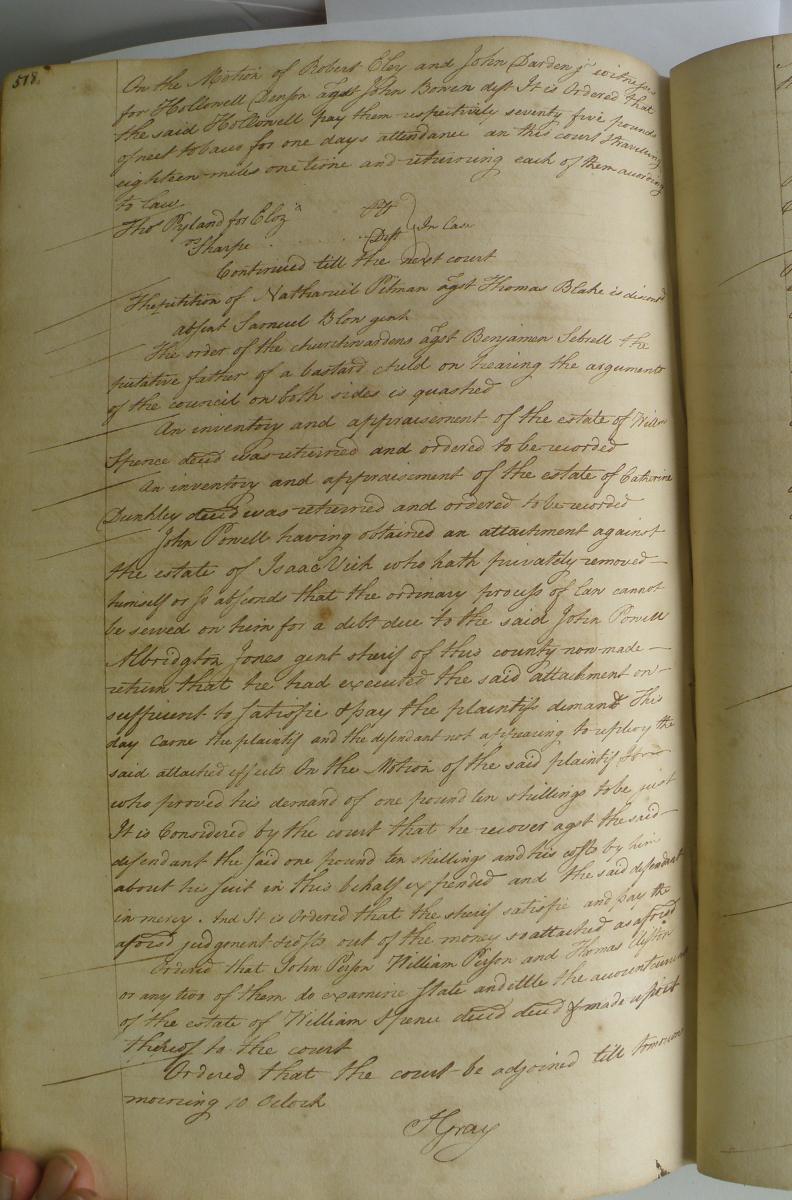 578.
On the Motion of Robert Eley and John Darden yr witnesses
for Hollowell Denson agst John Bowen deft It is Ordered that
the said Hollowell pay them respectively seventy five pounds
of neet tobacco for one days attendance on this court & traveling
eighteen miles one time and returning each of them according
to law
Thos Ryland for Eloz
Sharpe . . . . . . Plt
Deft } In Case
Continued till the next court
The petition of Nathaniel Pitman agst Thomas Blake is discont
absent Samuel Blow gent
The order of the churchwardens agst Benjamen Sebrell the
putative father of a bastard child on hearing the arguments
of the council on both sides is quashed
An inventory and appraisement of the estate of Willm
Spence decd was returned and ordered to be recorded
An inventory and appraisement of the estate of Catherine
Dunkley decd was returned and ordered to be recorded
John Powell having obtained an attachment against
the estate of Isaac Vick who hath privately removed
himself or so absconds that the ordinary process of law cannot
be served on him for a debt due to the said John Powell
Albridgton Jones gent sherif of this county now made
return that he had executed the said attachment on
sufficient to satisfie & pay the plaintifs demand This
day came the plaintif and the defendant not appearing to replevy the
said attached effects On the Motion of the said plaintif
who proved his demand of one pound ten shillings to be just
It is Considered by the court that he recover agst the said
defendant the said one pound ten shillings and his costs by him
about his suit in this behalf expended and the said defendant
in mercy. And It is Ordered that the sherif satisfie and pay the
aforesd judgement & costs out of the money so attached as aforesd
Ordered that John Person William Person and Thomas Clifton
or any two of them do examine state and settle the account current
of the estate of William Spence decd decd & made report
thereof to the court
Ordered that the court be adjoined till tomorrow
morning 10 Oclock
J Gray